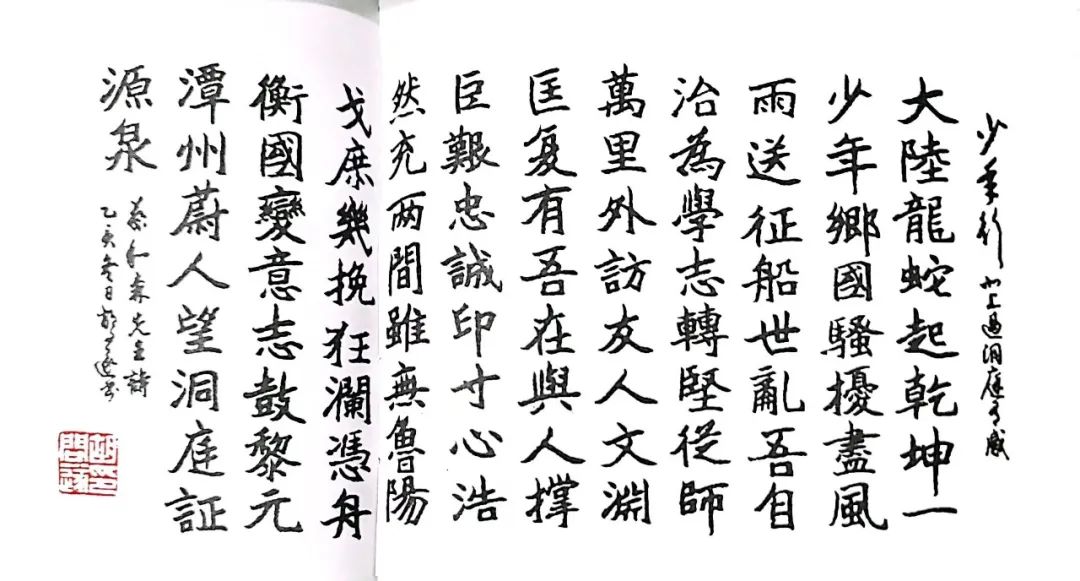 少年行 北上過洞庭有感
大陸龍蛇起乾坤一
少年鄉國騷擾盡風
雨送征船世亂吾自
治為學志轉堅從師
萬里外訪友人文淵
匡复有吾在與人撑
巨艱忠誠印寸心浩
然充两間雖無魯陽
戈庶幾挽狂瀾憑舟
衡國變意志鼓黎元
潭州蔚人望洞庭証
源泉
蔡和森先生詩
乙亥冬日胡问遂书